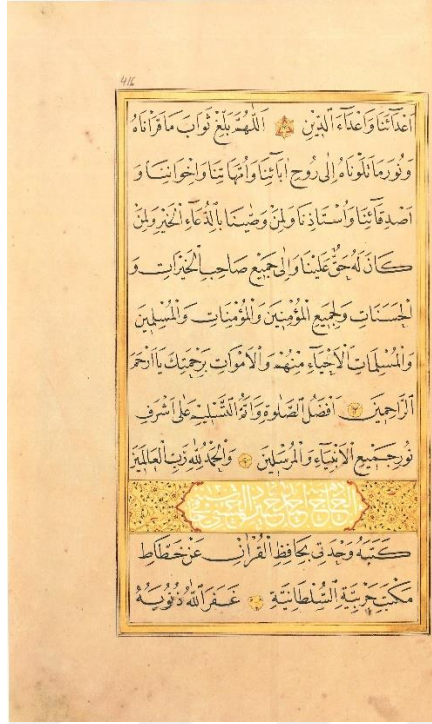 416
اَعْدَائِنَا وَاَعْدَاءِ الدِّينِ اَللّٰهُمَّ بَلِّغْ ثَوَابَ مَا قَرَأْنَاهُ
وَنُورَ مَا تَلَوْنَاهُ اِلٰى رُوحِ اٰبَائِنَا وَاُمَّهَاتِنَا وَاِخْوَانِنَا وَ
اَصْدِقَائِنَا وَاُسْتَاذِنَا وَلِمَنْ وَصَّيْنَا بِالدُّعَاءِ الْخَيْرِ وَلِمَنْ
كَانَ لَهُ حَقٌّ عَلَيْنَا وَاِلٰى جَمِيعِ صَاحِبِ الْخَيْرَاتِ وَ
الْحَسَنَاتِ وَلِجَمِيعِ الْمُؤْمِنِينَ وَالْمُؤْمِنَاتِ وَالْمُسْلِمِينَ
وَالْمُسْلِمَاتِ الْاَحْيَاءِ مِنْهُمْ وَالْاَمْوَاتِ بِرَحْمَتِكَ يَا اَرْحَمَ
الرَّاحِمِينَ اَفْضَلُ الصَّلٰوةِ وَاَتَمُّ التَّسْلِيمِ عَلٰى اَشْرَفِ
نُورِ جَمِيعِ الْاَنْبِيَاءِ وَالْمُرْسَلِينَ وَالْحَمْدُ لِلّٰهِ رَبِّ الْعَالَمِينَ
كَتَبَهُ وَحْدَتِي بِحَافِظِ الْقُرْاٰنِ عَنْ خَطَّاطِ
مَكْتَبِ حَرْبِيَّةِ السُّلْطَانِيَّةِ غَفَرَ اللّٰهُ ذُنُوبَهُ